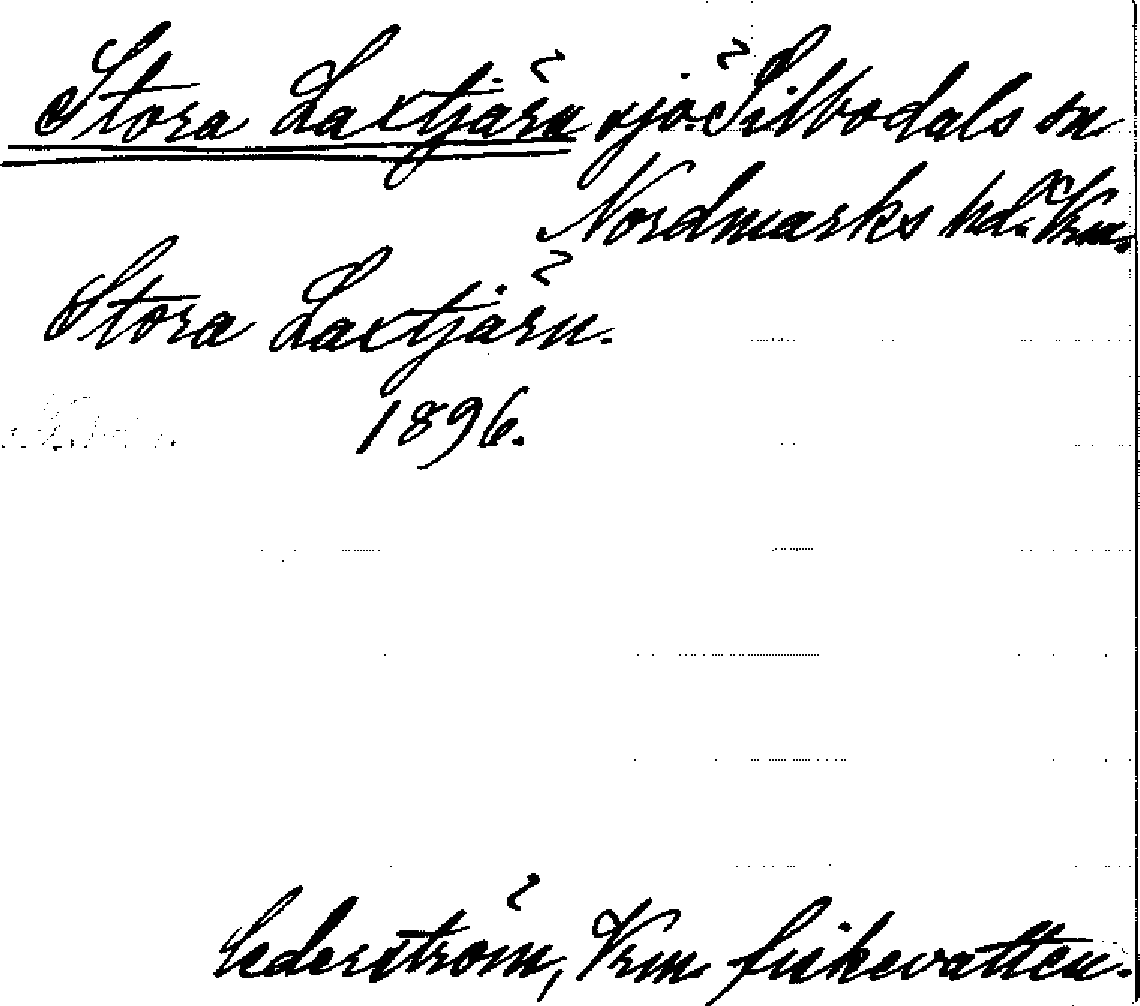 Stora Laxtjärn sjö. Silbodals sn
Nordmarks hd. Vrm.
Stora Laxtjärn.
1896.
Cederström, Vrm. fiskevatten.